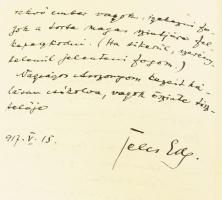 rekvő ember vagyok, igyekezni fo-
gok a torta magas szintjére fel-
kapaszkodni. (Ha sikerül, szemér-
telenül jelenteni fogom.)
Nagyságos Asszonyom kezeit há-
lásan csókolva, vagyok őszinte tisz-
telője
917. V. 15.
Telcs Ede